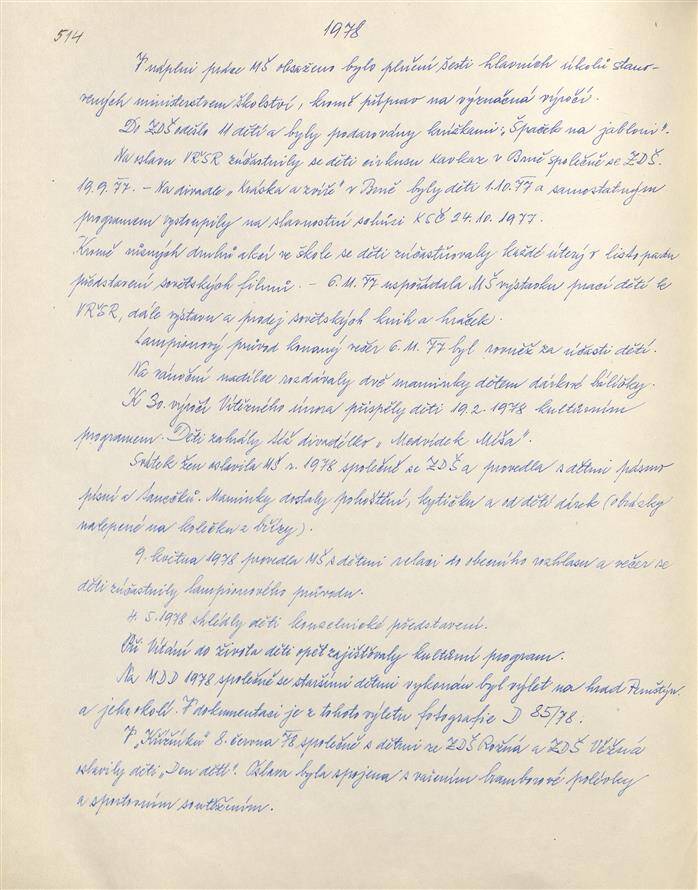 514
1978
V náplni práce MŠ obsaženo bylo plnění šesti hlavních úkolů stano-
vených ministerstvem školství, kromě příprav na význačná výročí.
Do ZDŠ odešlo 11 dětí a byly podarovány knížkami: „Špaček na jabloni".
Na oslavu VŘSR zúčastnily se děti cirkusu Kavkaz v Brně společně se ZDŠ.
19.9.77. – Na divadle „Kráska a zvíře" v Brně byly děti 1.10.77 a samostatným
programem vystoupily na slavnostní schůzi KSČ 24.10.1977.
Kromě různých druhů akcí ve škole se děti zúčastňovaly každé úterý v listopadu
představení sovětských filmů. – 6.11.77 uspořádala MŠ výstavku prací dětí k
VŘSR, dále výstavu a prodej sovětských knih a hraček.
Lampionový průvod konaný večer 6.11.77 byl rovněž za účasti dětí.
Na vánoční nadílce rozdávaly dvě maminky dětem dárkové balíčky.
K 30. výročí Vítězného února přispěly děti 19.2.1978 kulturním
programem. Děti zahrály též divadélko „Medvídek Míša".
Svátek žen oslavila MŠ r. 1978 společně se ZDŠ a provedla s dětmi pásmo
písní a tanečků. Maminky dostaly pohoštění, kytičku a od dětí dárek (obrázky
nalepené na kolečku z břízy).
9. května 1978 provedla MŠ s dětmi relaci do obecního rozhlasu a večer se
děti zúčastnily lampionového průvodu.
4.5.1978 shlédly děti kouzelnické představení.
Při Vítání do života děti opět zajišťovaly kulturní program.
Na MDD 1978 společně se staršími dětmi vykonán byl výlet na hrad Pernštejn
a jeho okolí. V dokumentaci je z tohoto výletu fotografie D 85/78.
V „Křížníku" 8. června 78 společně s dětmi ze ZDŠ Rožná a ZDŠ Věžná
oslavily děti „Den dětí". Oslava byla spojena s vařením bramborové polévky
a sportovním soutěžením.